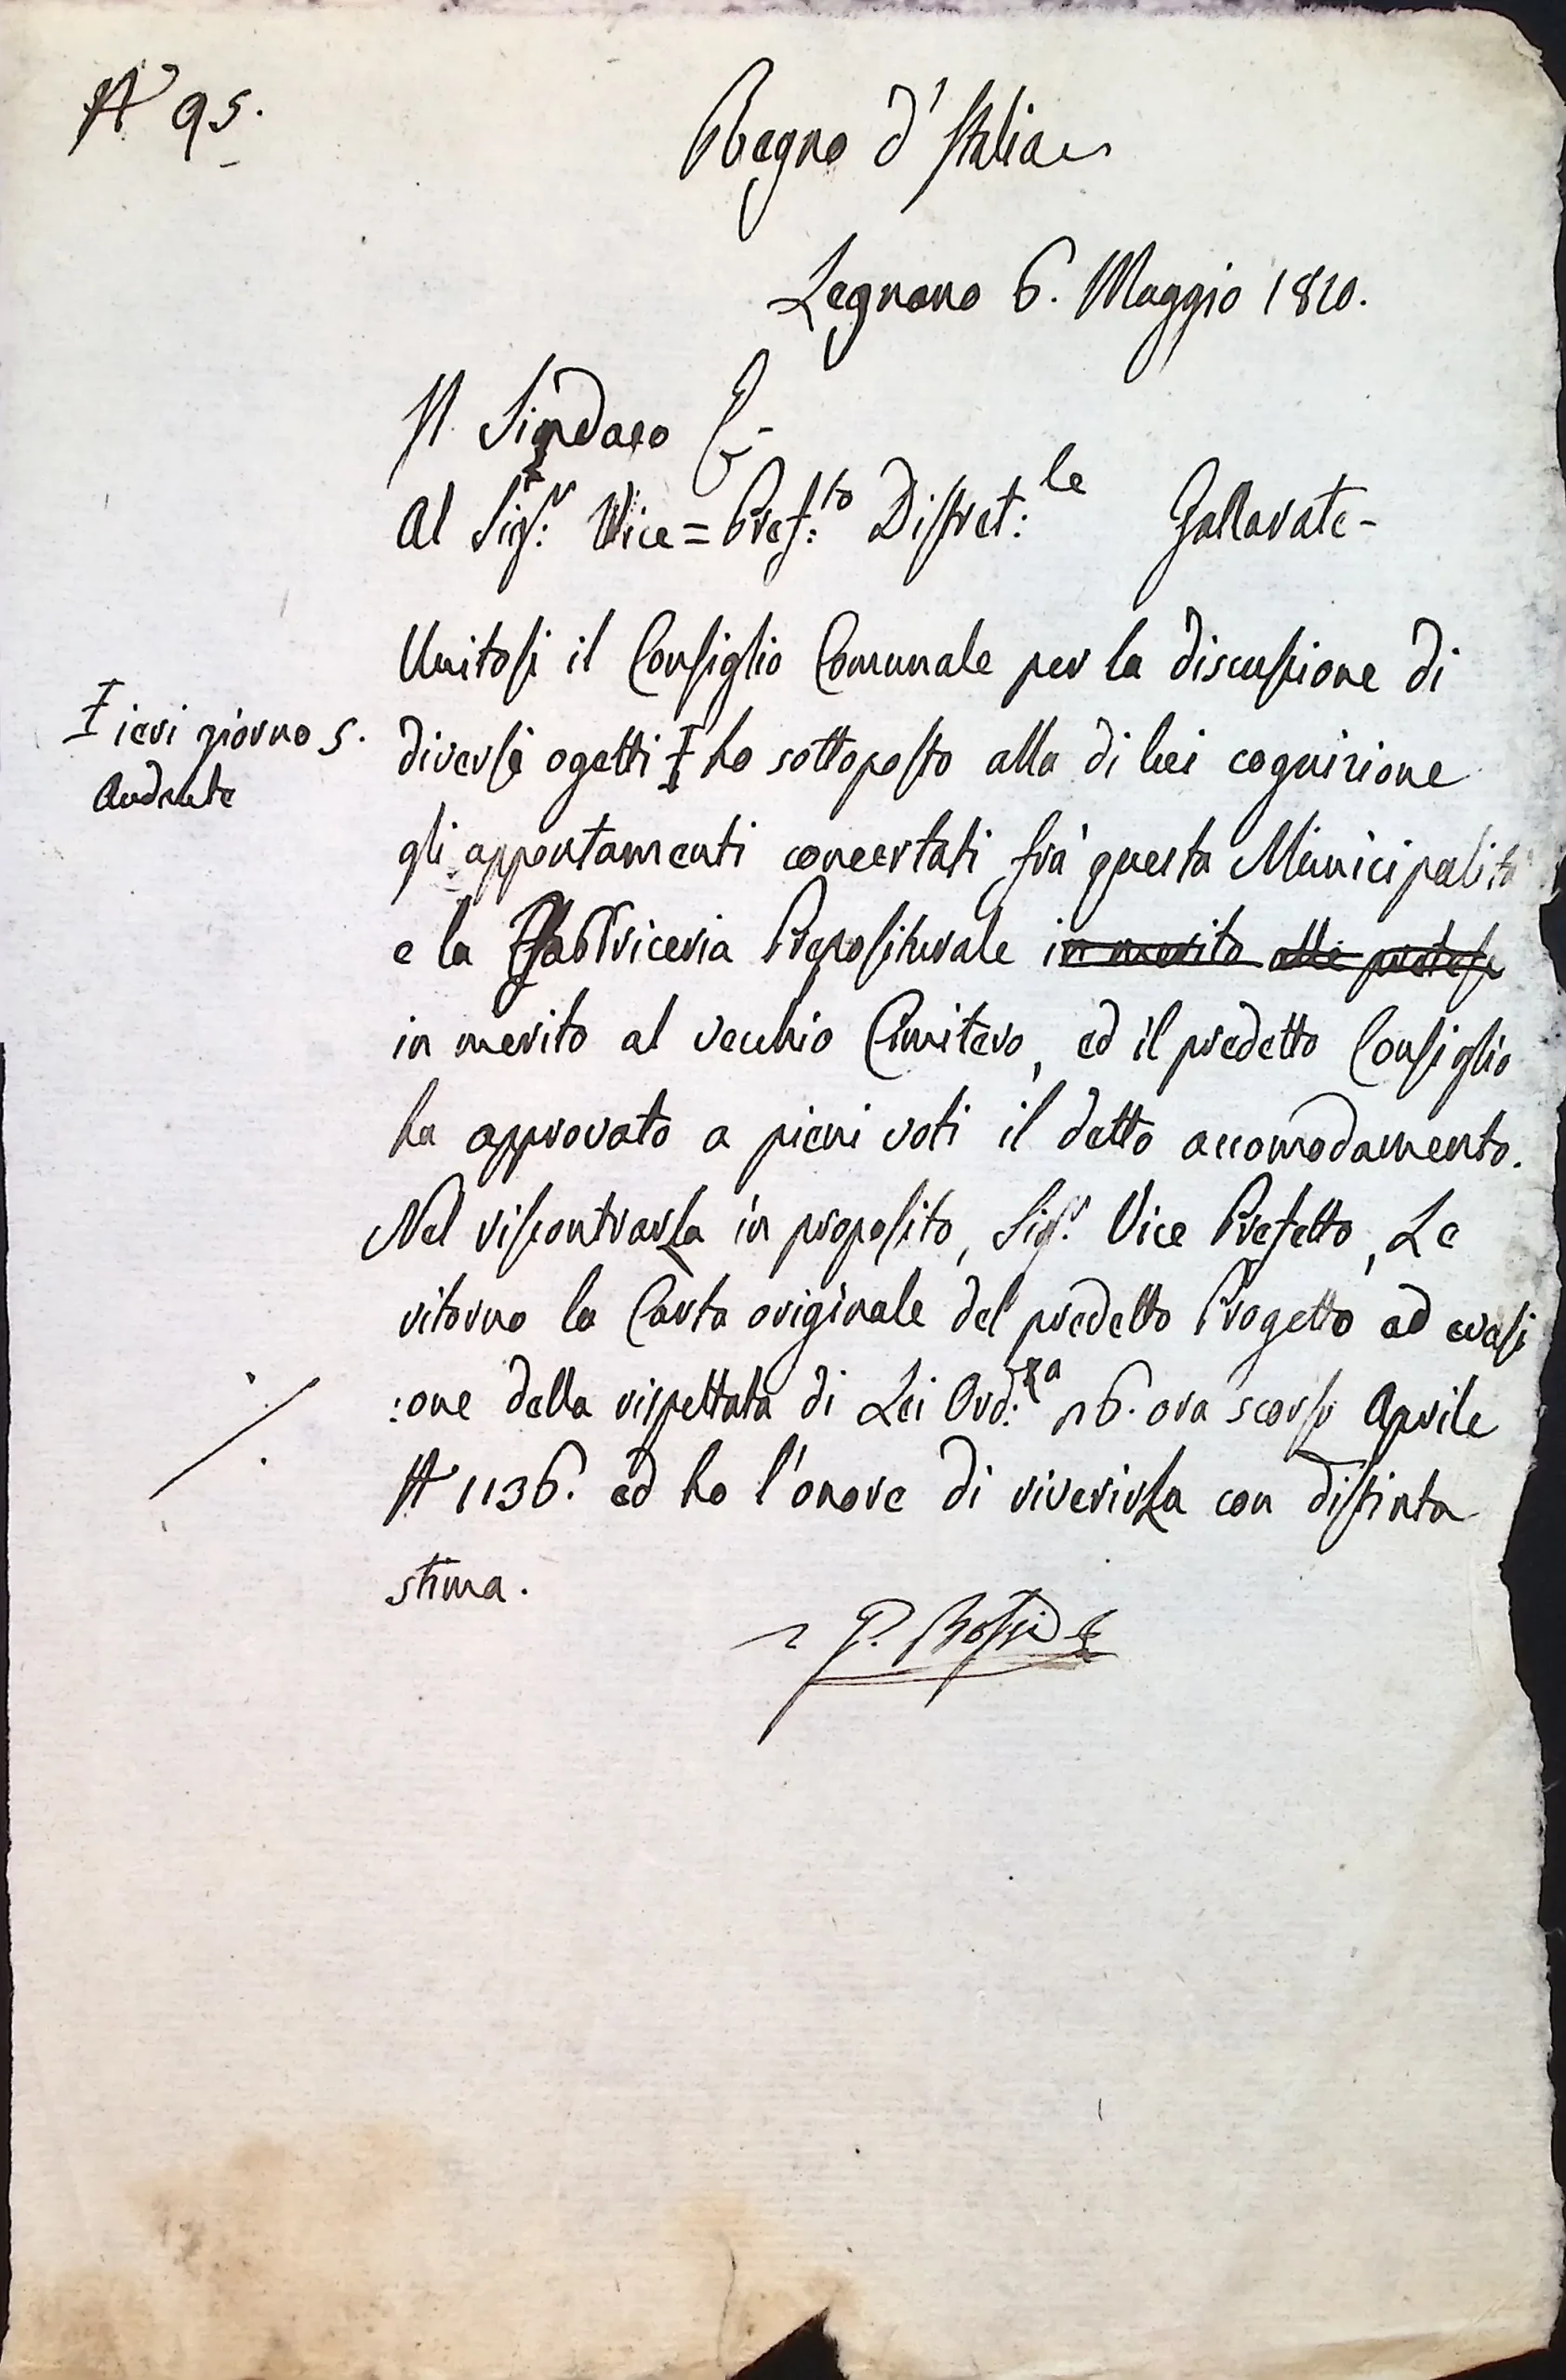 N 95.
Regno d'Italia
Legnano 6. Maggio 1810.
Il Sindaco
Al Sig.r Vice=Pref:to Distret:le Gallarate-
Unitosi il Consiglio Comunale per la discussione di
I ieri giorno 5.
Andante
diversi ogetti I ho sottoposto alla di lui cognizione
gli appontamenti concertati frà questa Municipalità
e la Fabbriceria Prepositurale in merito alle pretese
in merito al vecchio Cimitero, ed il predetto Consiglio
ha approvato a pieni voti il detto accomodamento.
Nel riscontrarLa in proposito, Sig.r Vice Prefetto, Le
ritorno la Carta originale del predetto Progetto ad evasi
:one della rispettata di Lei Ord:za 26. ora scorso Aprile
N 1136. ed ho l'onore di riverirLa con distinta
stima.
P. Bossi